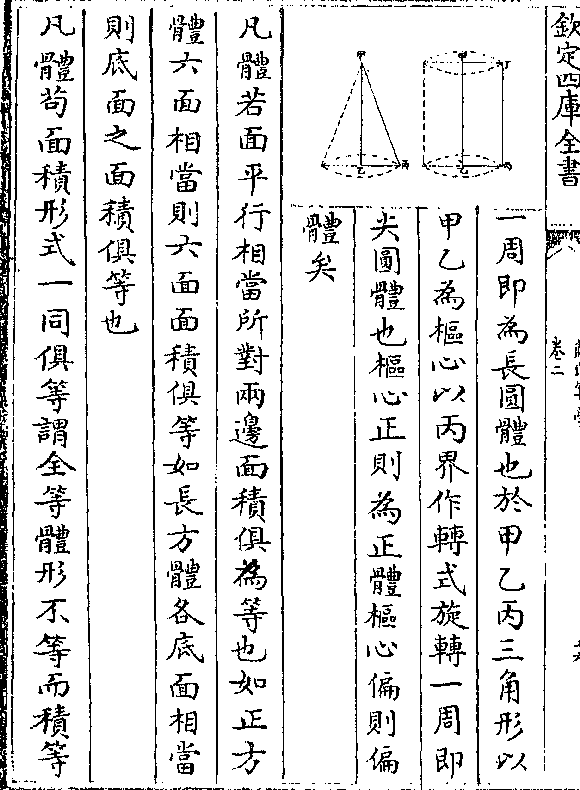 欽定四庫全書
卷二
一周即為長圓體也於甲乙丙三角形以
甲乙為樞心以丙界作轉式旋轉一周即
尖圓體也樞心正則為正體樞心偏則偏
體矣
甲
丁
乙
丙
甲
乙
丙
凡體若面平行相當所對兩邊面積俱為等也如正方
體六面相當則六面面積俱等如長方體各底面相當
則底面之面積俱等也
凡體茍面積形式一同俱等謂全等體形不等而積等